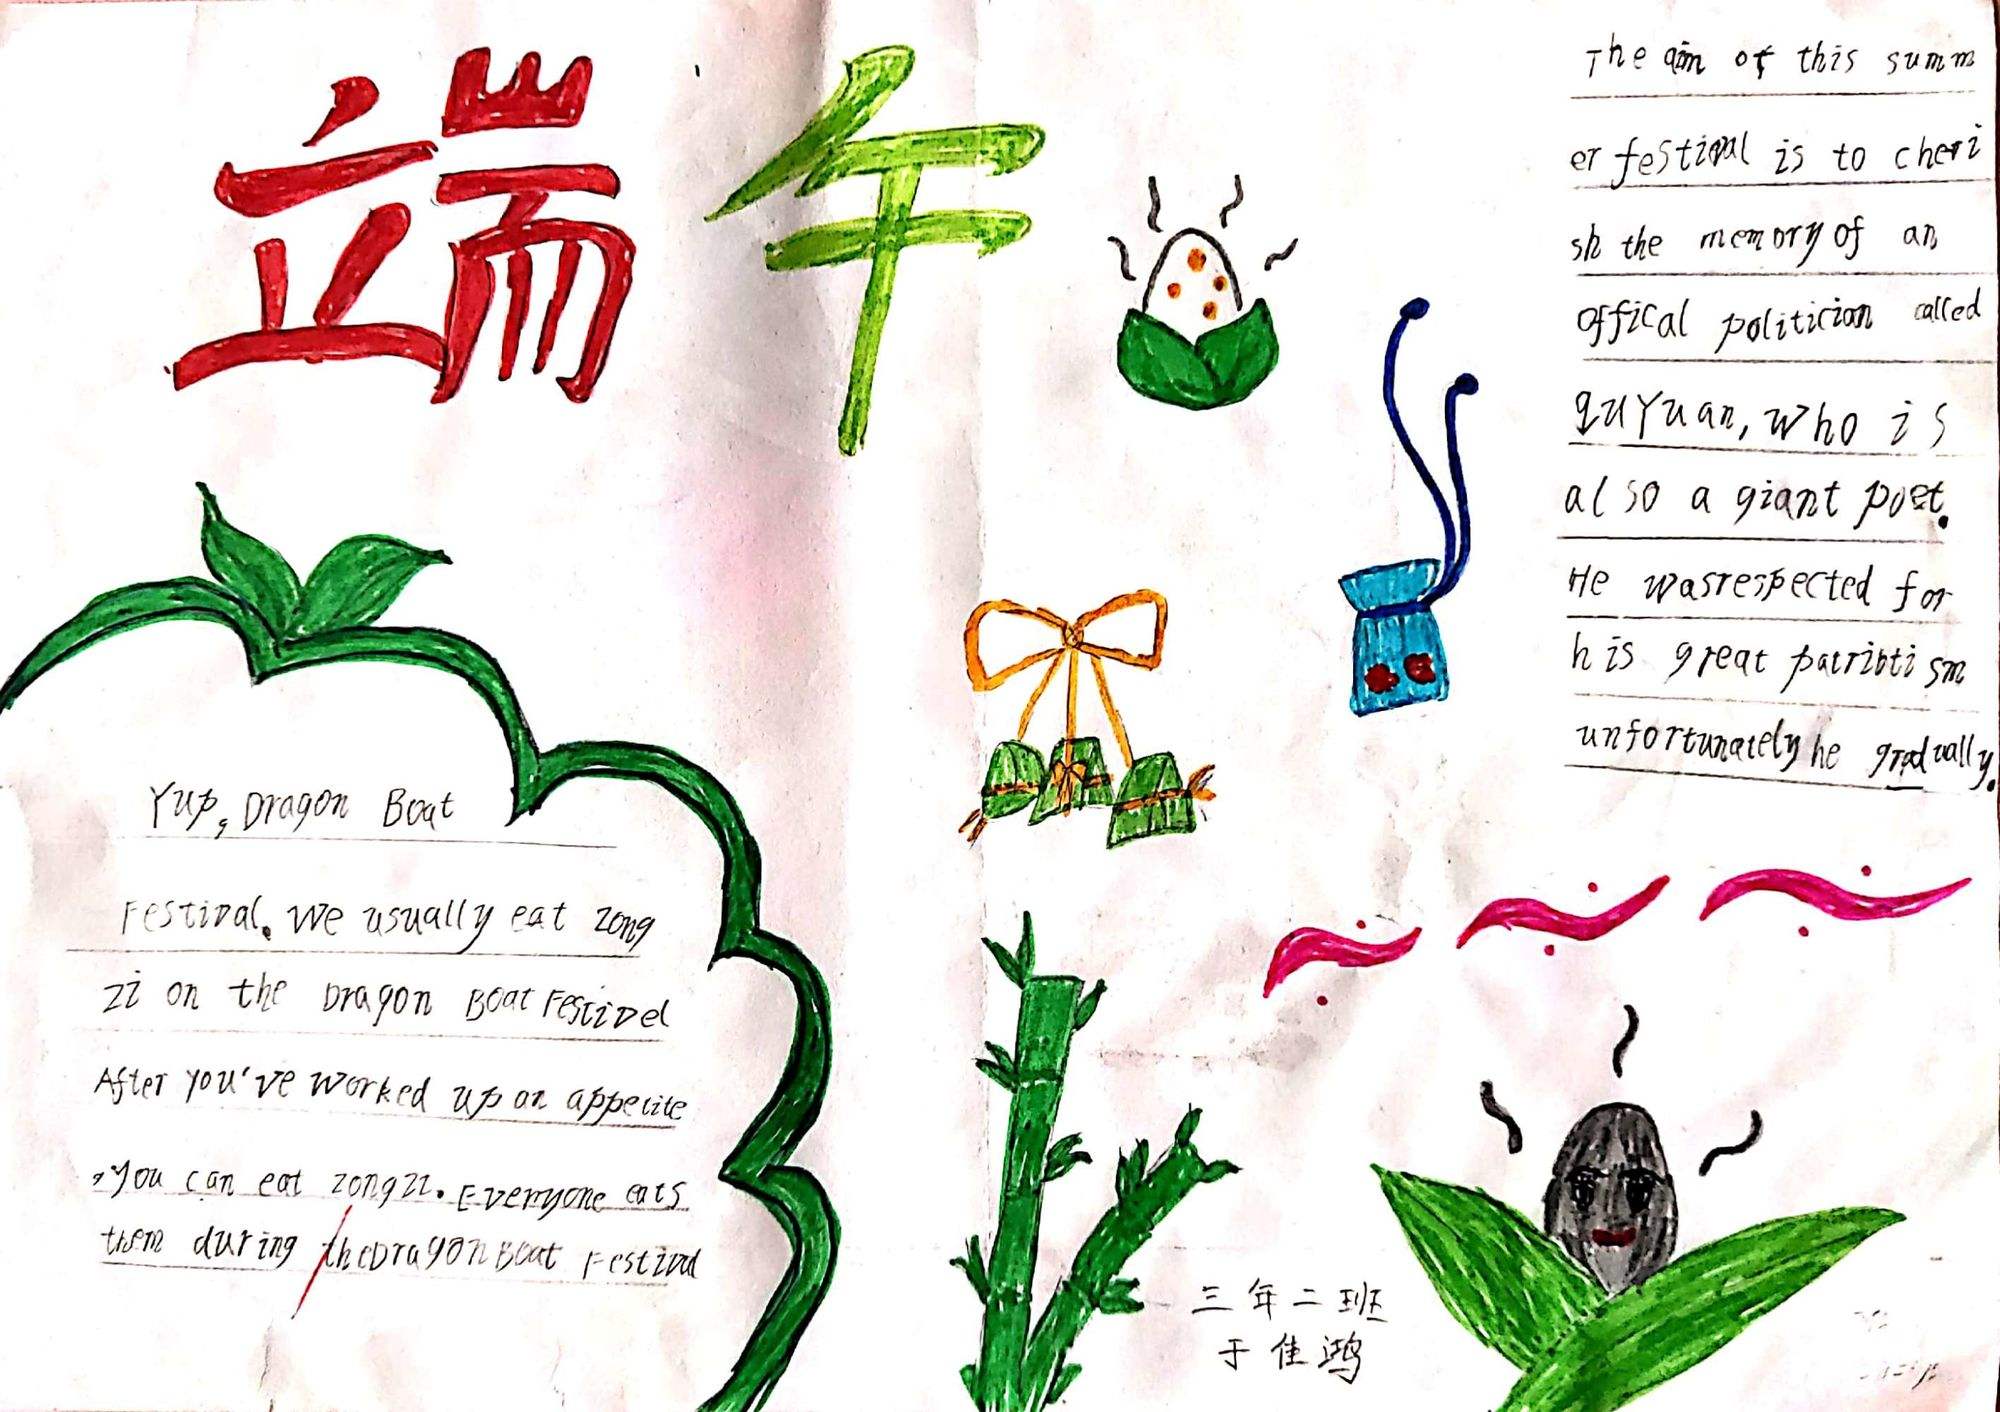 端午
The aim of this summ
er festival is to cheri
sh the memory of an
offical politician called
quYuan, who is
also a giant poet.
He wasrespected for
his great patriotism
unfortunately he gradually.
Yup, Dragon Boat
Festival. We usually eat zong
zi on the Dragon Boat Festivel
After you've worked up an appetite
,you can eat zongzi. Everyone eats
them during theDragon Boat Festival
三年二班
于佳鸿